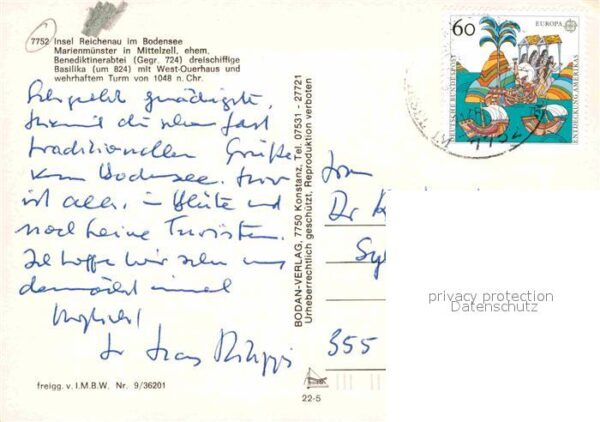 7752 Insel Reichenau im Bodensee
Marienmünster in Mittelzell, ehem.
Benediktinerabtei (Gegr. 724) dreischiffige
Basilika (um 824) mit West-Querhaus und
wehrhaftem Turm von 1048 n. Chr.
Sehr geehrte gnädigste,
hiermit die schon fast
traditionellen Grüße
vom Bodensee. Hier
ist alles in Blüte und
noch keine Touristen.
Ich hoffe wir sehen uns
demnächst einmal
Herzlichst
Ihr
freigg. v. I.M.B.W. Nr. 9/36201
BODAN-VERLAG, 7750 Konstanz, Tel. 07531 - 27721
Urheberrechtlich geschützt, Reproduktion verboten
22-5
60
EUROPA
DEUTSCHE BUNDESPOST
ENTDECKUNG AMERIKAS
Dr
355
privacy protection
Datenschutz